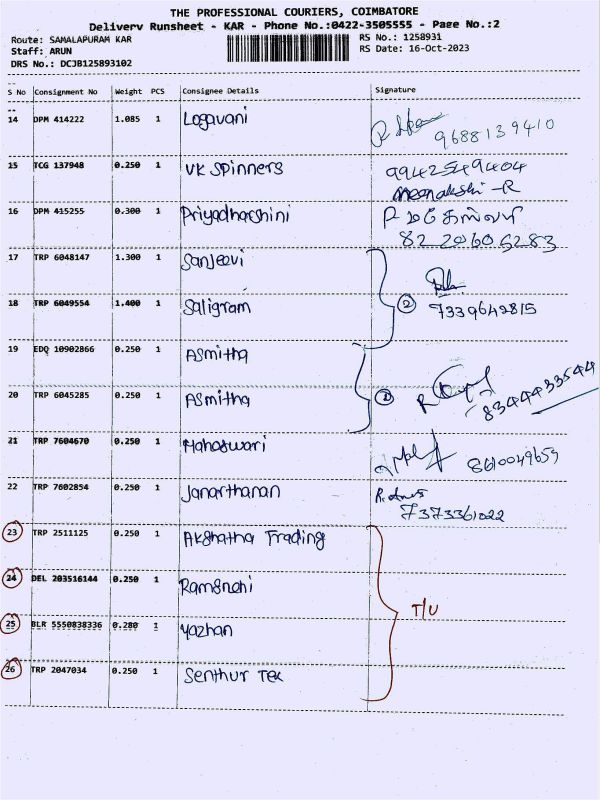 THE PROFESSIONAL COURIERS, COIMBATORE
Delivery Runsheet - KAR - Phone No.:0422-3505555 - Page No.:2
Route: SAMALAPURAM KAR RS No.: 1258931
Staff: ARUN RS Date: 16-Oct-2023
DRS No.: DCJB125893102
S No Consignment No Weight PCS Consignee Details Signature
14 DPM 414222 1.085 1 Logavani 9688139410
15 TCG 137948 0.250 1 VK Spinners 9942549404
meenakshi -R
16 DPM 415255 0.300 1 Priyadharshini P மகேஸ்வரி
82 20605283
17 TRP 6048147 1.300 1 Sanjeevi
18 TRP 6049554 1.400 1 Saligram 2 7339642815
19 EDQ 10902866 0.250 1 Asmitha
20 TRP 6045285 0.250 1 Asmitha 8344433544
21 TRP 7604670 0.250 1 Maheswari 8610049659
22 TRP 7602854 0.250 1 Janarthanan
7373361022
23 TRP 2511125 0.250 1 Akshatha Trading
24 DEL 203516144 0.250 1 Ramsnehi
T/U
25 BLR 5550838336 0.280 1 Yazhan
26 TRP 2047034 0.250 1 Senthur Tex